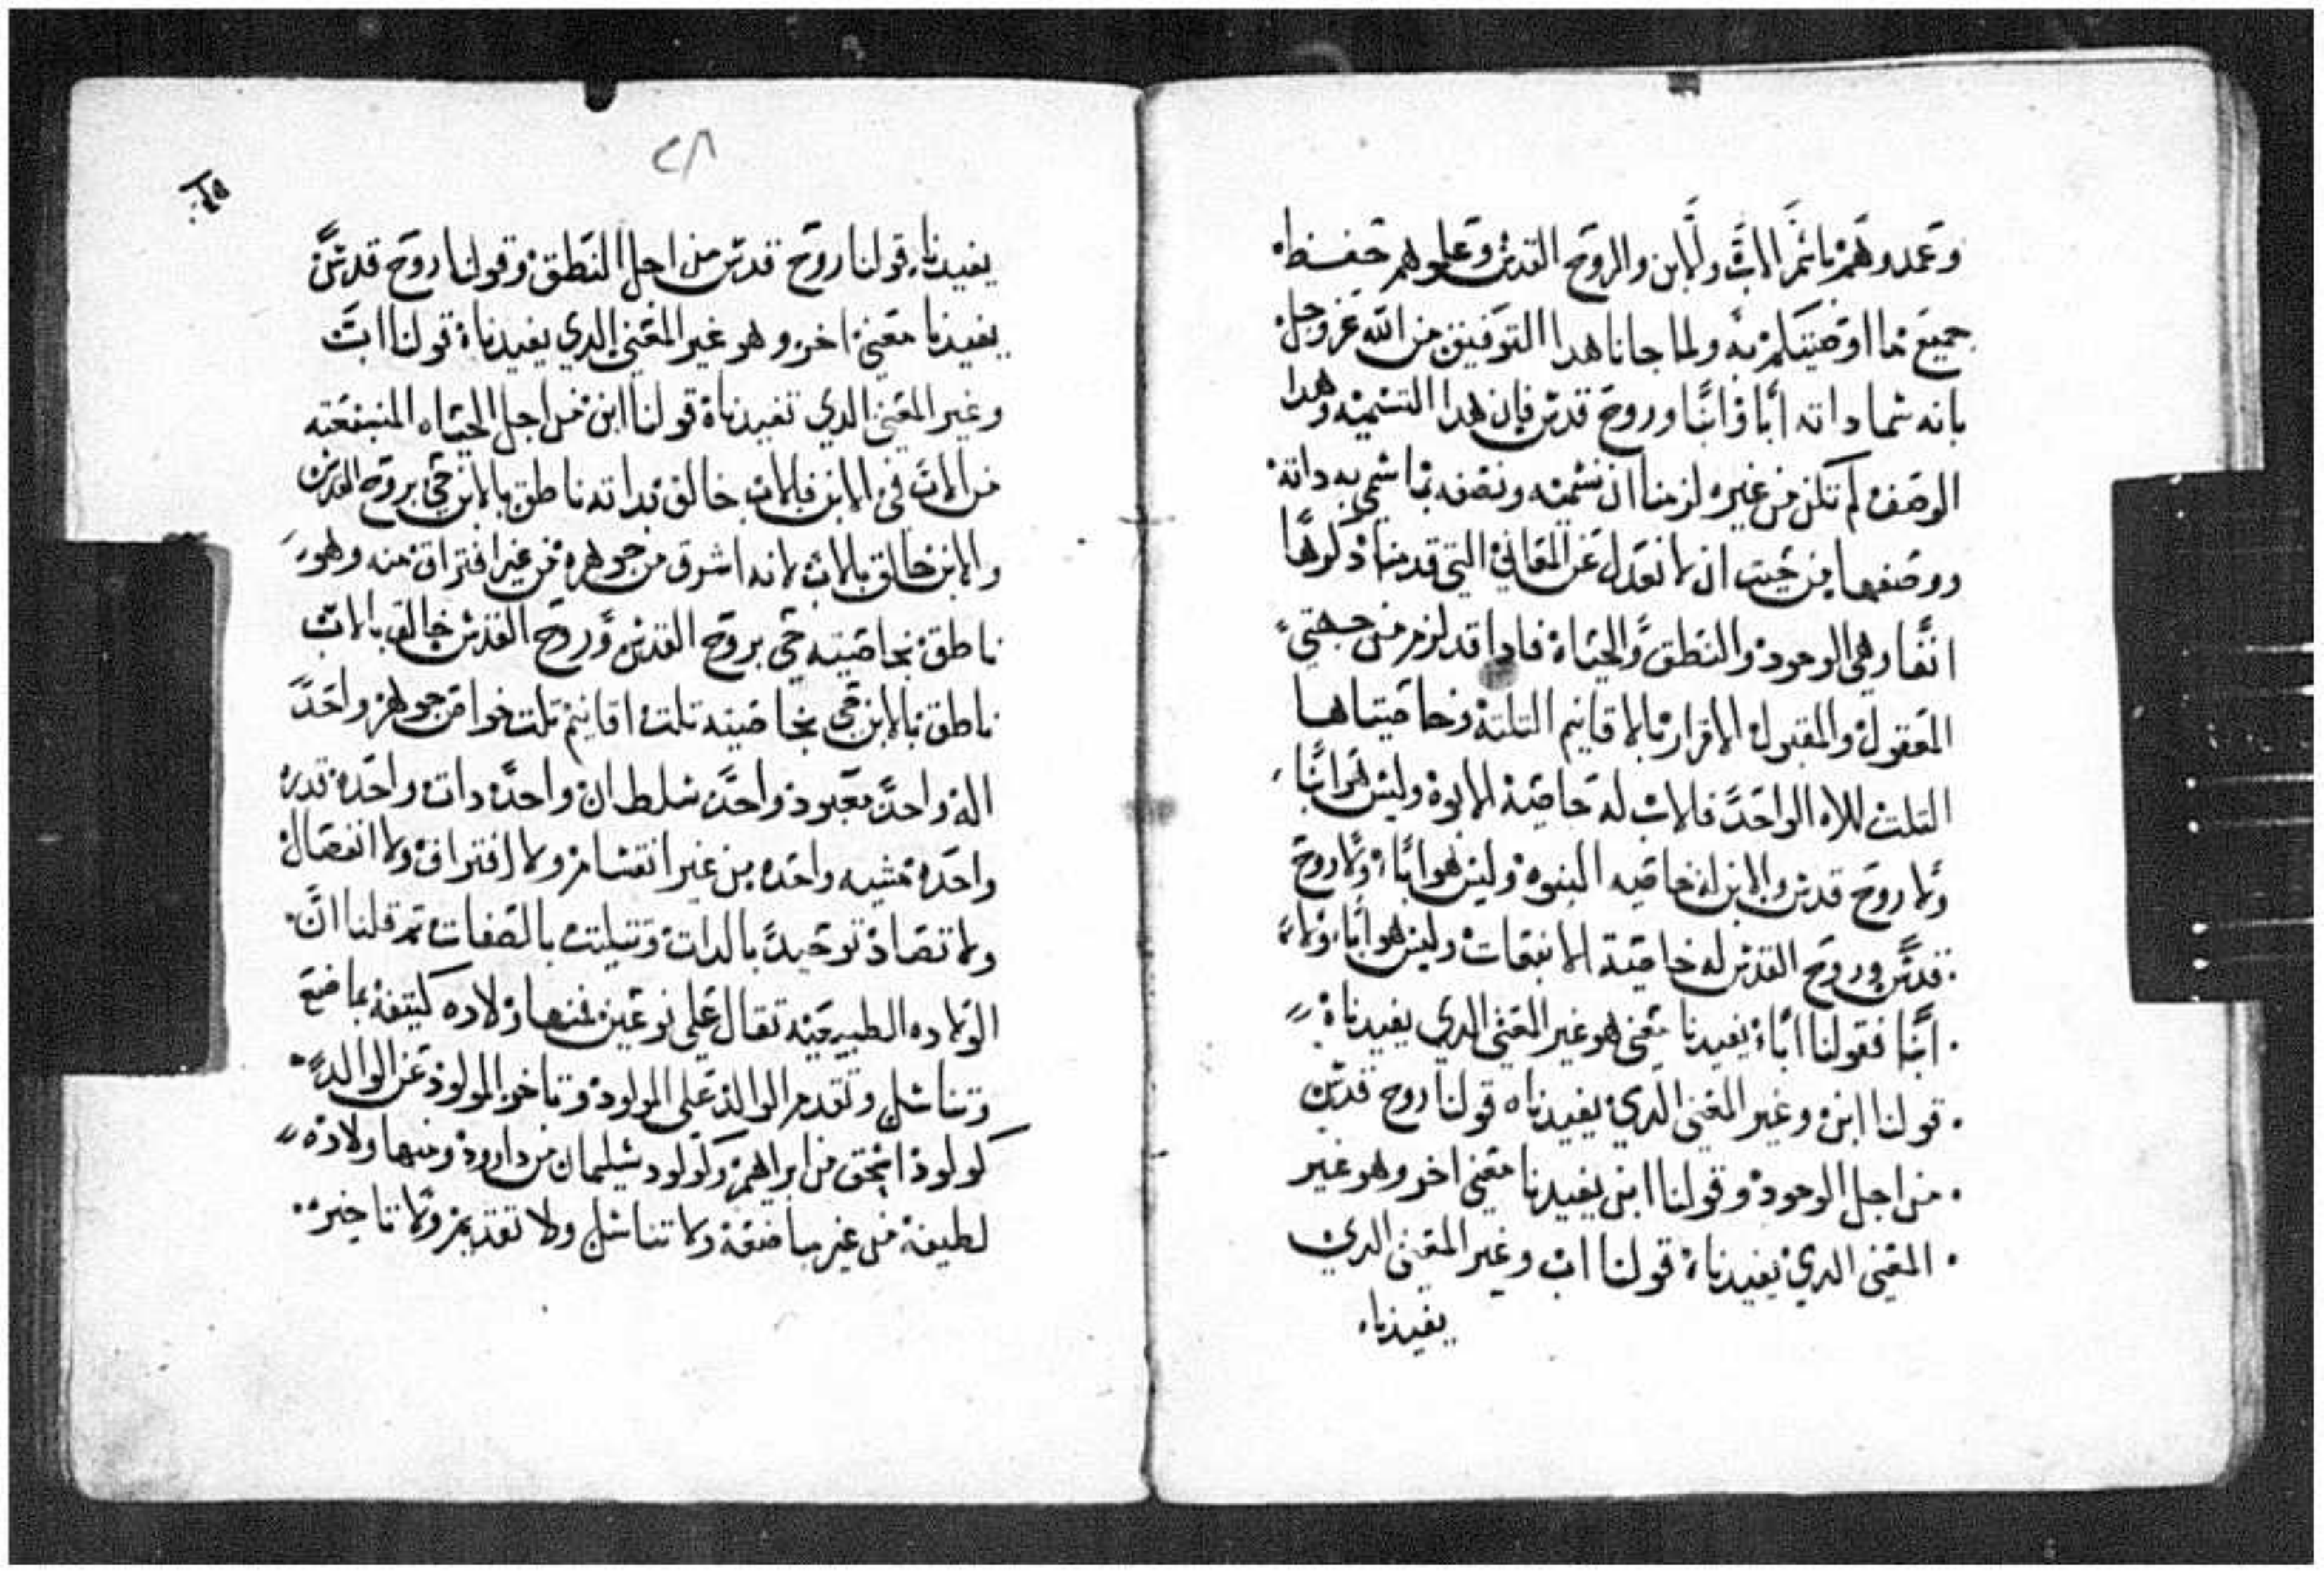 وعمدوهم باسم الاب والابن والروح القدس وعلموهم حفظ
جميع ما اوصيتكم به ولما جانا هدا التوفيق من الله عز وجل
بانه سما داته أبا وابنا وروح قدس فإن هدا التسميه وهدا
الوصف لم تكن من غيره لزمنا ان نسميه ونصفه بما سمي به داته
ووصفها من حيت ان لا نعدل عن المعاني التي قدمنا دكرها
انفا وهي الوجود والنطق والحياة فادا قد لزم من جهتي
المعقول والمقبول الاقرار بالاقانيم التلتة وخاصيتاها
التلت للاه الواحد فالاب له خاصية الابوة وليس هو ابنا
ولا روح قدس والابن له خاصيه البنوه وليس هو ابا ولا روح
قدس وروح القدس له خاصية الانبعات وليس هو ابا ولا
ابنا فقولنا ابا يفيدنا معنى هو غير المعنى الدي يفيدناه
قولنا ابن وغير المعنى الدي يفيدناه قولنا روح قدس
من اجل الوجود وقولنا ابن يفيدنا معنى اخر وهو غير
المعنى الدي يفيدناه قولنا اب وغير المعنى الدي
يفيدناه
٢٨
يفيدناه قولنا روح قدس من اجل النطق وقولنا روح قدس
يفيدنا معنى اخر وهو غير المعنى الدي يفيدناه قولنا اب
وغير المعنى الدي تفيدناه قولنا ابن من اجل الحياه المنبعقه
من الاب في الابن فالاب خالق بداته ناطق بالابن حي بروح القدس
والابن خالق بالاب لانه اشرق من جوهره من غير افتراق منه وهو
ناطق بخاصيته حي بروح القدس وروح القدس خالق بالاب
ناطق بالابن حي بخاصيته تلت اقانيم تلت خواص جوهر واحد
اله واحد معبود واحد سلطان واحد دات واحده قدره
واحده مشيه واحده من غير انقسام ولا افتراق ولا انفصال
ولا تضاد توحيد بالدات وتتليت بالصفات تم قلنا ان
الولاده الطبيعيه تقال على نوعين فمنها ولاده كتيفة بمباضعه
وتناسل وتقدم الوالد على المولود وتاخر المولود عن الوالد
كولود اسحق من ابراهيم وكولود سليمان من داوود ومنها ولاده
لطيفة من غير مباضعة ولا تناسل ولا تقديم ولا تاخير